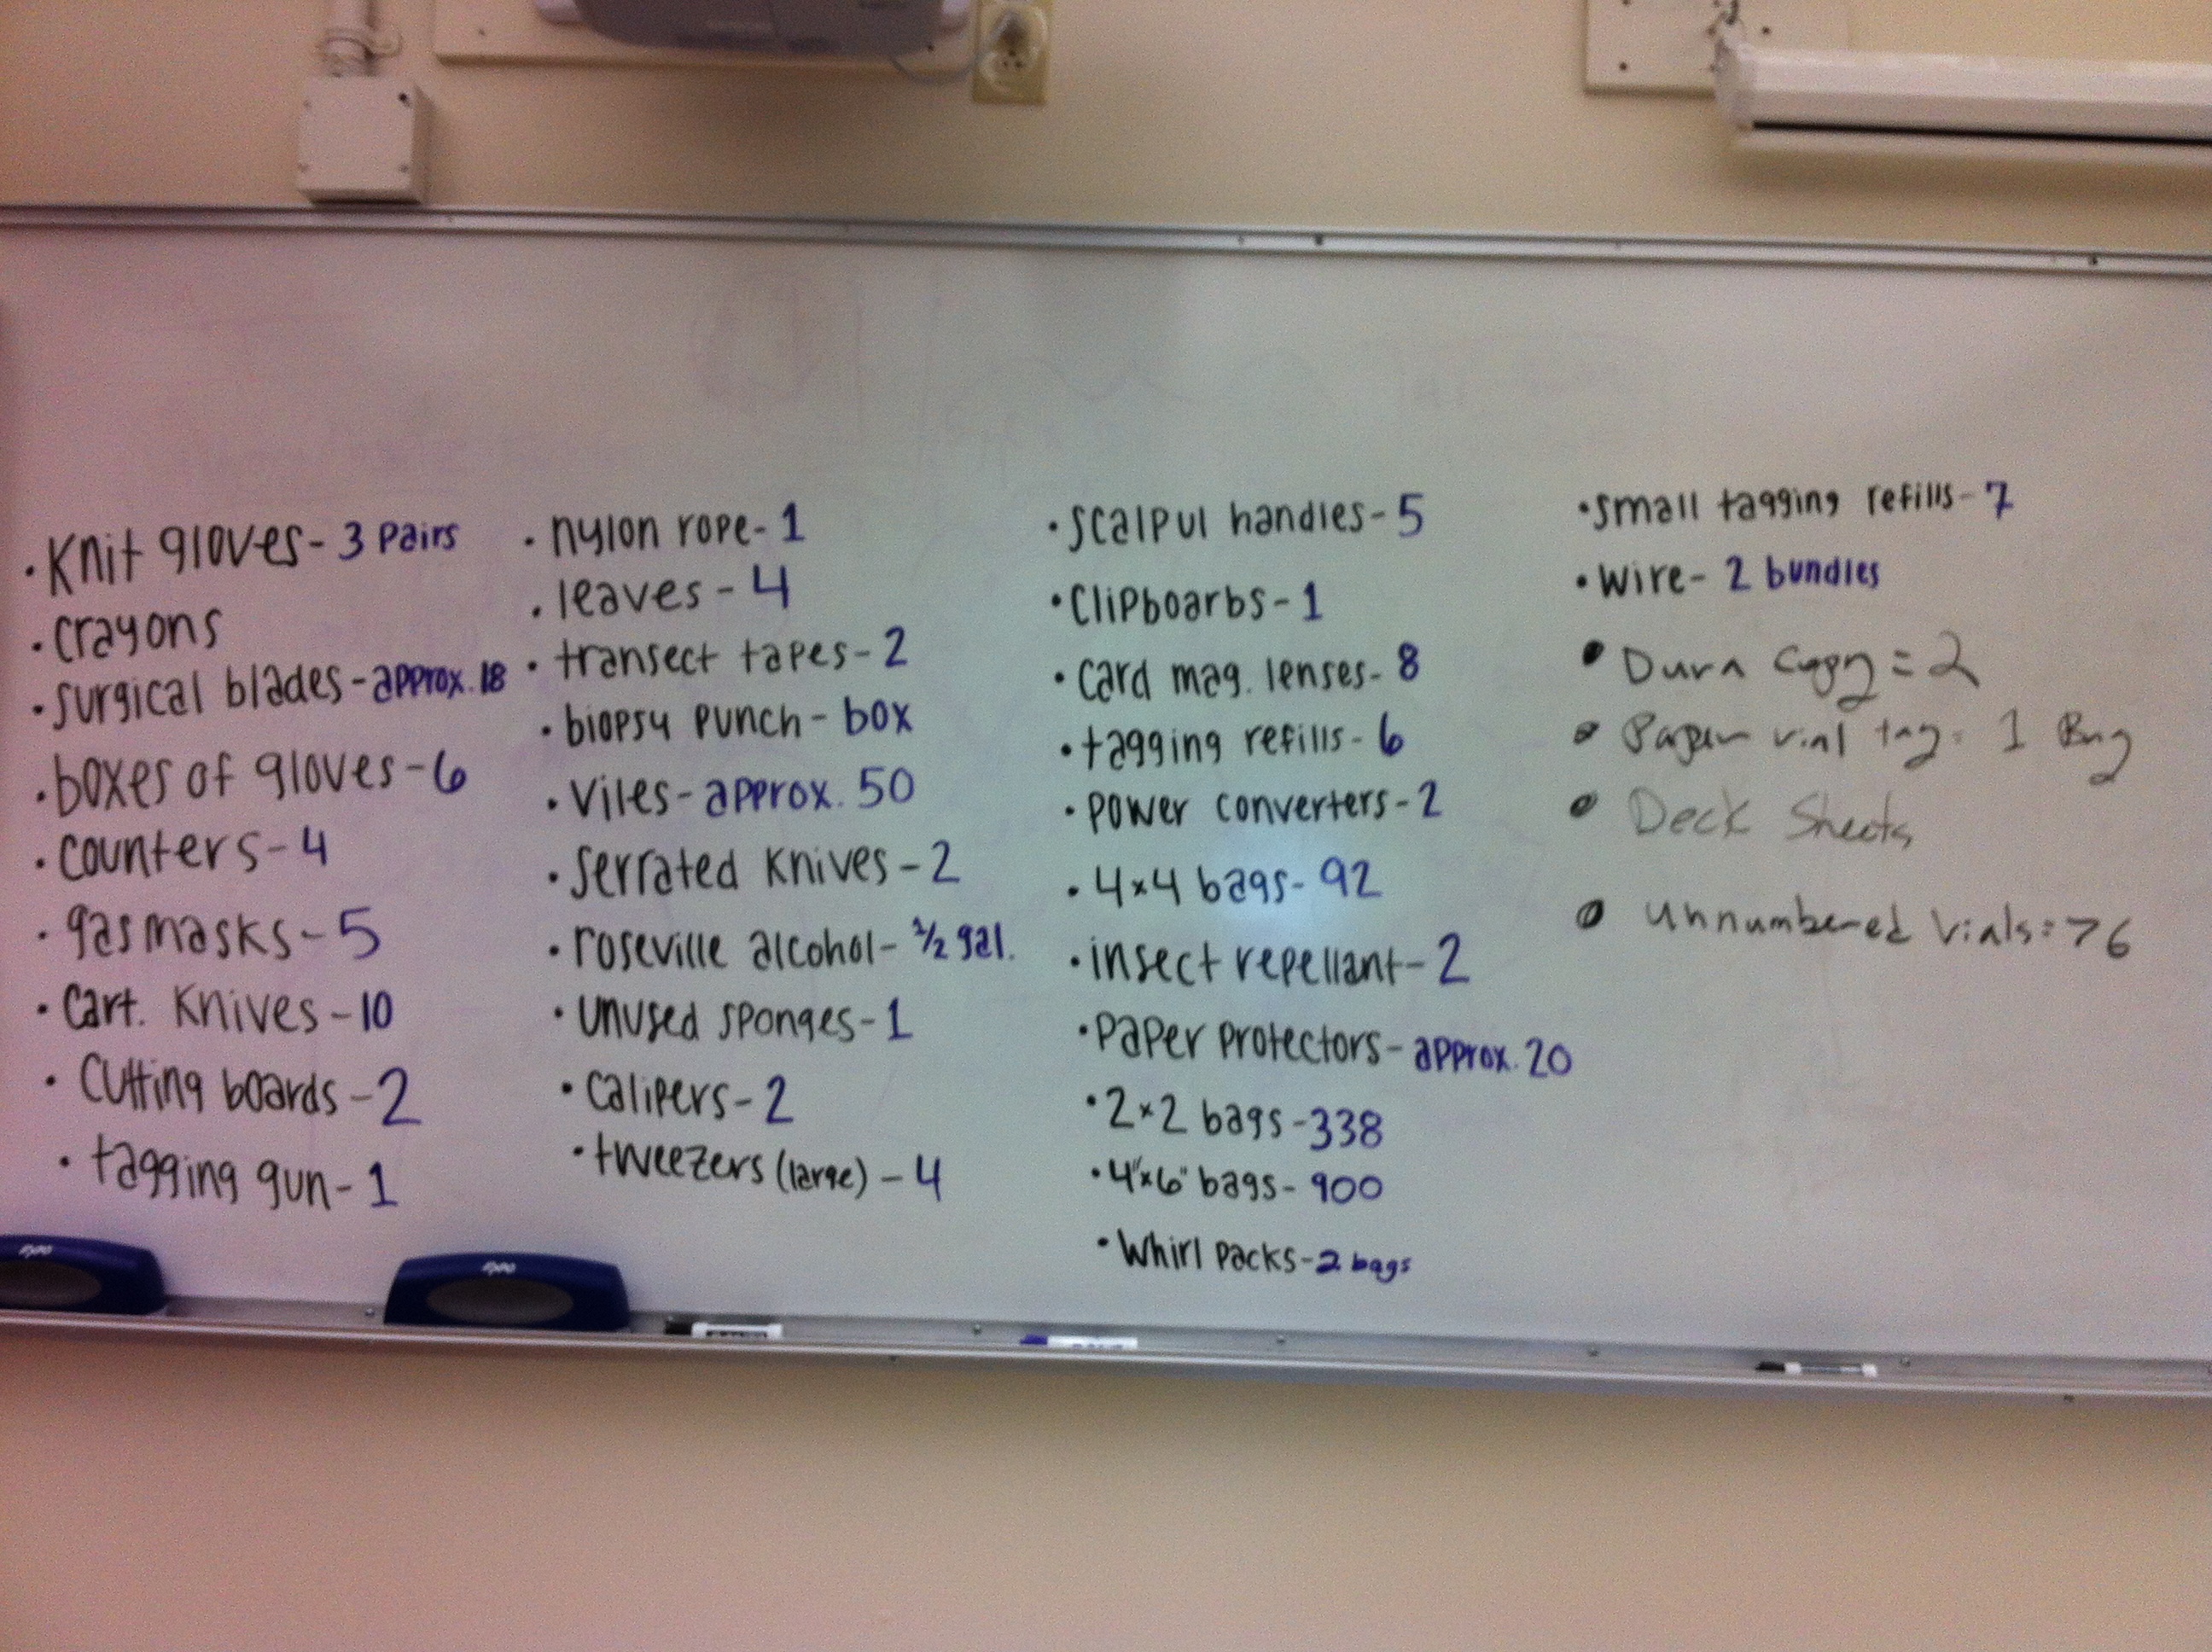 • Knit gloves - 3 pairs
• crayons
• surgical blades - approx. 18
• boxes of gloves - 6
• counters - 4
• gas masks - 5
• cart. knives - 10
• cutting boards - 2
• tagging gun - 1
• nylon rope - 1
• leaves - 4
• transect tapes - 2
• biopsy punch - box
• viles - approx. 50
• serrated knives - 2
• roseville alcohol - 1/2 gal.
• unused sponges - 1
• calipers - 2
• tweezers (large) - 4
• scalpul handles - 5
• clipboarbs - 1
• card mag. lenses - 8
• tagging refills - 6
• power converters - 2
• 4x4 bags - 92
• insect repellant - 2
• paper protectors - approx. 20
• 2x2 bags - 338
• 4"x6" bags - 900
• whirl packs - 2 bags
• small tagging refills - 7
• wire - 2 bundles
• Dura Copy = 2
• Paper vial tag = 1 Bag
• Deck Sheets
• Unnumbered Vials = 76
expo
expo